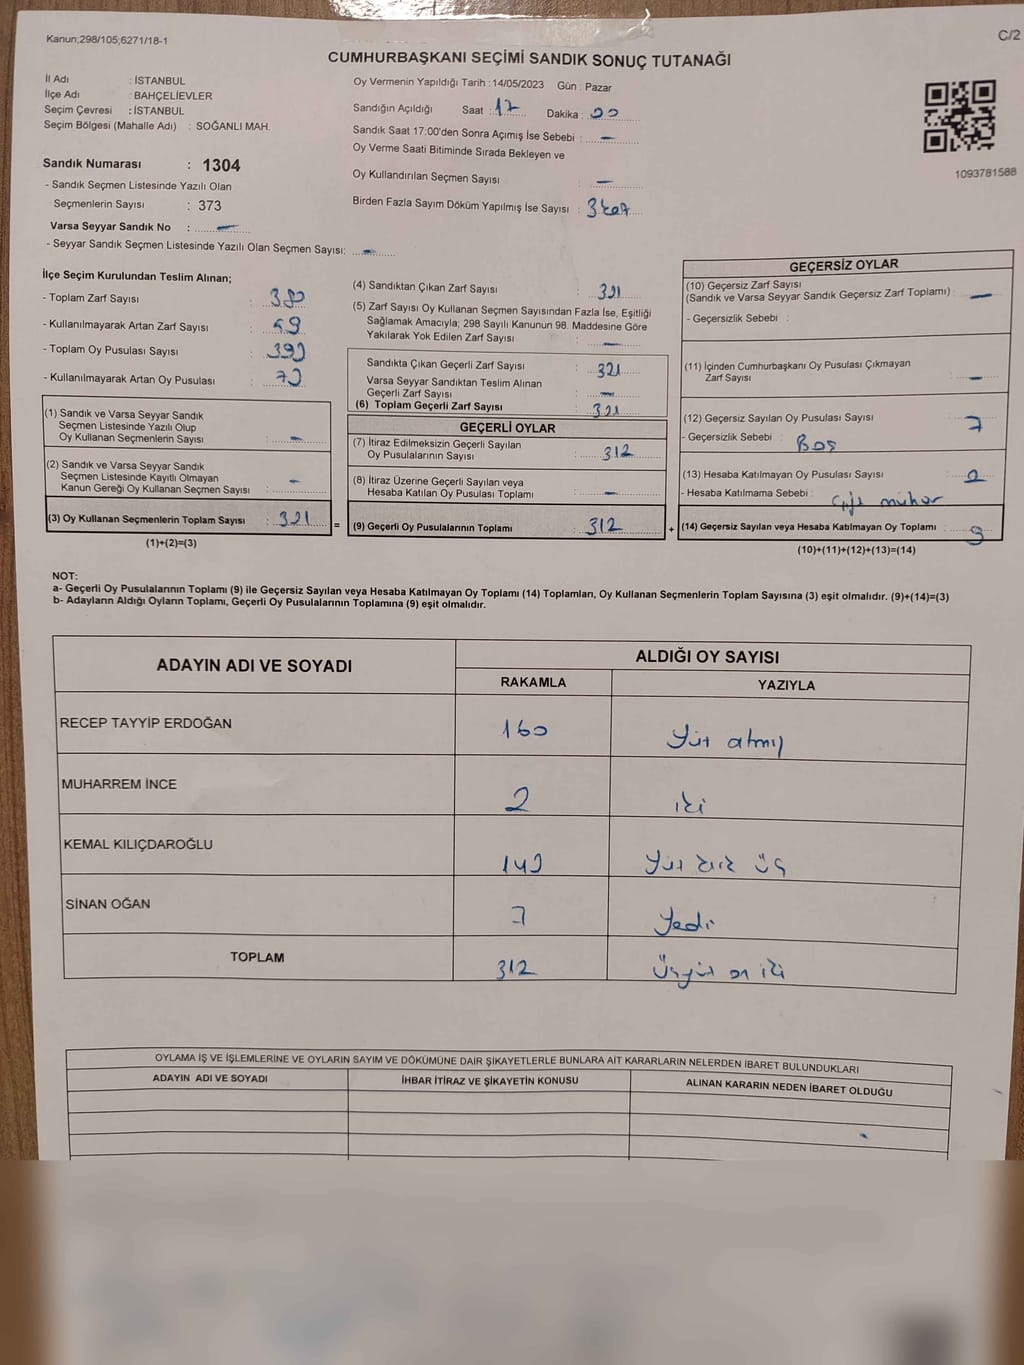 Kanun;298/105;6271/18-1
C/2
CUMHURBAŞKANI SEÇİMİ SANDIK SONUÇ TUTANAĞI
İl Adı : İSTANBUL
İlçe Adı : BAHÇELİEVLER
Seçim Çevresi : İSTANBUL
Seçim Bölgesi (Mahalle Adı) : SOĞANLI MAH.
Oy Vermenin Yapıldığı Tarih : 14/05/2023 Gün : Pazar
Sandığın Açıldığı Saat : 17 Dakika : 00
Sandık Saat 17:00'den Sonra Açımış İse Sebebi : –
Oy Verme Saati Bitiminde Sırada Bekleyen ve
Oy Kullandırılan Seçmen Sayısı : –
Birden Fazla Sayım Döküm Yapılmış İse Sayısı :
1093781588
Sandık Numarası : 1304
- Sandık Seçmen Listesinde Yazılı Olan
Seçmenlerin Sayısı : 373
Varsa Seyyar Sandık No : –
- Seyyar Sandık Seçmen Listesinde Yazılı Olan Seçmen Sayısı: –
İlçe Seçim Kurulundan Teslim Alınan;
- Toplam Zarf Sayısı : 380
- Kullanılmayarak Artan Zarf Sayısı : 59
- Toplam Oy Pusulası Sayısı : 390
- Kullanılmayarak Artan Oy Pusulası : 70
(1) Sandık ve Varsa Seyyar Sandık
Seçmen Listesinde Yazılı Olup
Oy Kullanan Seçmenlerin Sayısı : –
(2) Sandık ve Varsa Seyyar Sandık
Seçmen Listesinde Kayıtlı Olmayan
Kanun Gereği Oy Kullanan Seçmen Sayısı : –
(3) Oy Kullanan Seçmenlerin Toplam Sayısı : 321 =
(1)+(2)=(3)
(4) Sandıktan Çıkan Zarf Sayısı : 321
(5) Zarf Sayısı Oy Kullanan Seçmen Sayısından Fazla İse, Eşitliği
Sağlamak Amacıyla; 298 Sayılı Kanunun 98. Maddesine Göre
Yakılarak Yok Edilen Zarf Sayısı : –
Sandıkta Çıkan Geçerli Zarf Sayısı : 321
Varsa Seyyar Sandıktan Teslim Alınan
Geçerli Zarf Sayısı : –
(6) Toplam Geçerli Zarf Sayısı : 321
GEÇERLİ OYLAR
(7) İtiraz Edilmeksizin Geçerli Sayılan
Oy Pusulalarının Sayısı : 312
(8) İtiraz Üzerine Geçerli Sayılan veya
Hesaba Katılan Oy Pusulası Toplamı : –
(9) Geçerli Oy Pusulalarının Toplamı : 312 +
GEÇERSİZ OYLAR
(10) Geçersiz Zarf Sayısı
(Sandık ve Varsa Seyyar Sandık Geçersiz Zarf Toplamı) : –
- Geçersizlik Sebebi :
(11) İçinden Cumhurbaşkanı Oy Pusulası Çıkmayan
Zarf Sayısı : –
(12) Geçersiz Sayılan Oy Pusulası Sayısı : 7
- Geçersizlik Sebebi : Boş
(13) Hesaba Katılmayan Oy Pusulası Sayısı : 2
- Hesaba Katılmama Sebebi : Çift mühür
(14) Geçersiz Sayılan veya Hesaba Katılmayan Oy Toplamı : 9
(10)+(11)+(12)+(13)=(14)
NOT:
a- Geçerli Oy Pusulalarının Toplamı (9) ile Geçersiz Sayılan veya Hesaba Katılmayan Oy Toplamı (14) Toplamları, Oy Kullanan Seçmenlerin Toplam Sayısına (3) eşit olmalıdır. (9)+(14)=(3)
b- Adayların Aldığı Oyların Toplamı, Geçerli Oy Pusulalarının Toplamına (9) eşit olmalıdır.
ADAYIN ADI VE SOYADI
ALDIĞI OY SAYISI
RAKAMLA YAZIYLA
RECEP TAYYİP ERDOĞAN 160 Yüz atmış
MUHARREM İNCE 2 iki
KEMAL KILIÇDAROĞLU 143 Yüz kırk üç
SİNAN OĞAN 7 Yedi
TOPLAM 312 Üçyüz on iki
OYLAMA İŞ VE İŞLEMLERİNE VE OYLARIN SAYIM VE DÖKÜMÜNE DAİR ŞİKAYETLERLE BUNLARA AİT KARARLARIN NELERDEN İBARET BULUNDUKLARI
ADAYIN ADI VE SOYADI İHBAR İTİRAZ VE ŞİKAYETİN KONUSU ALINAN KARARIN NEDEN İBARET OLDUĞU